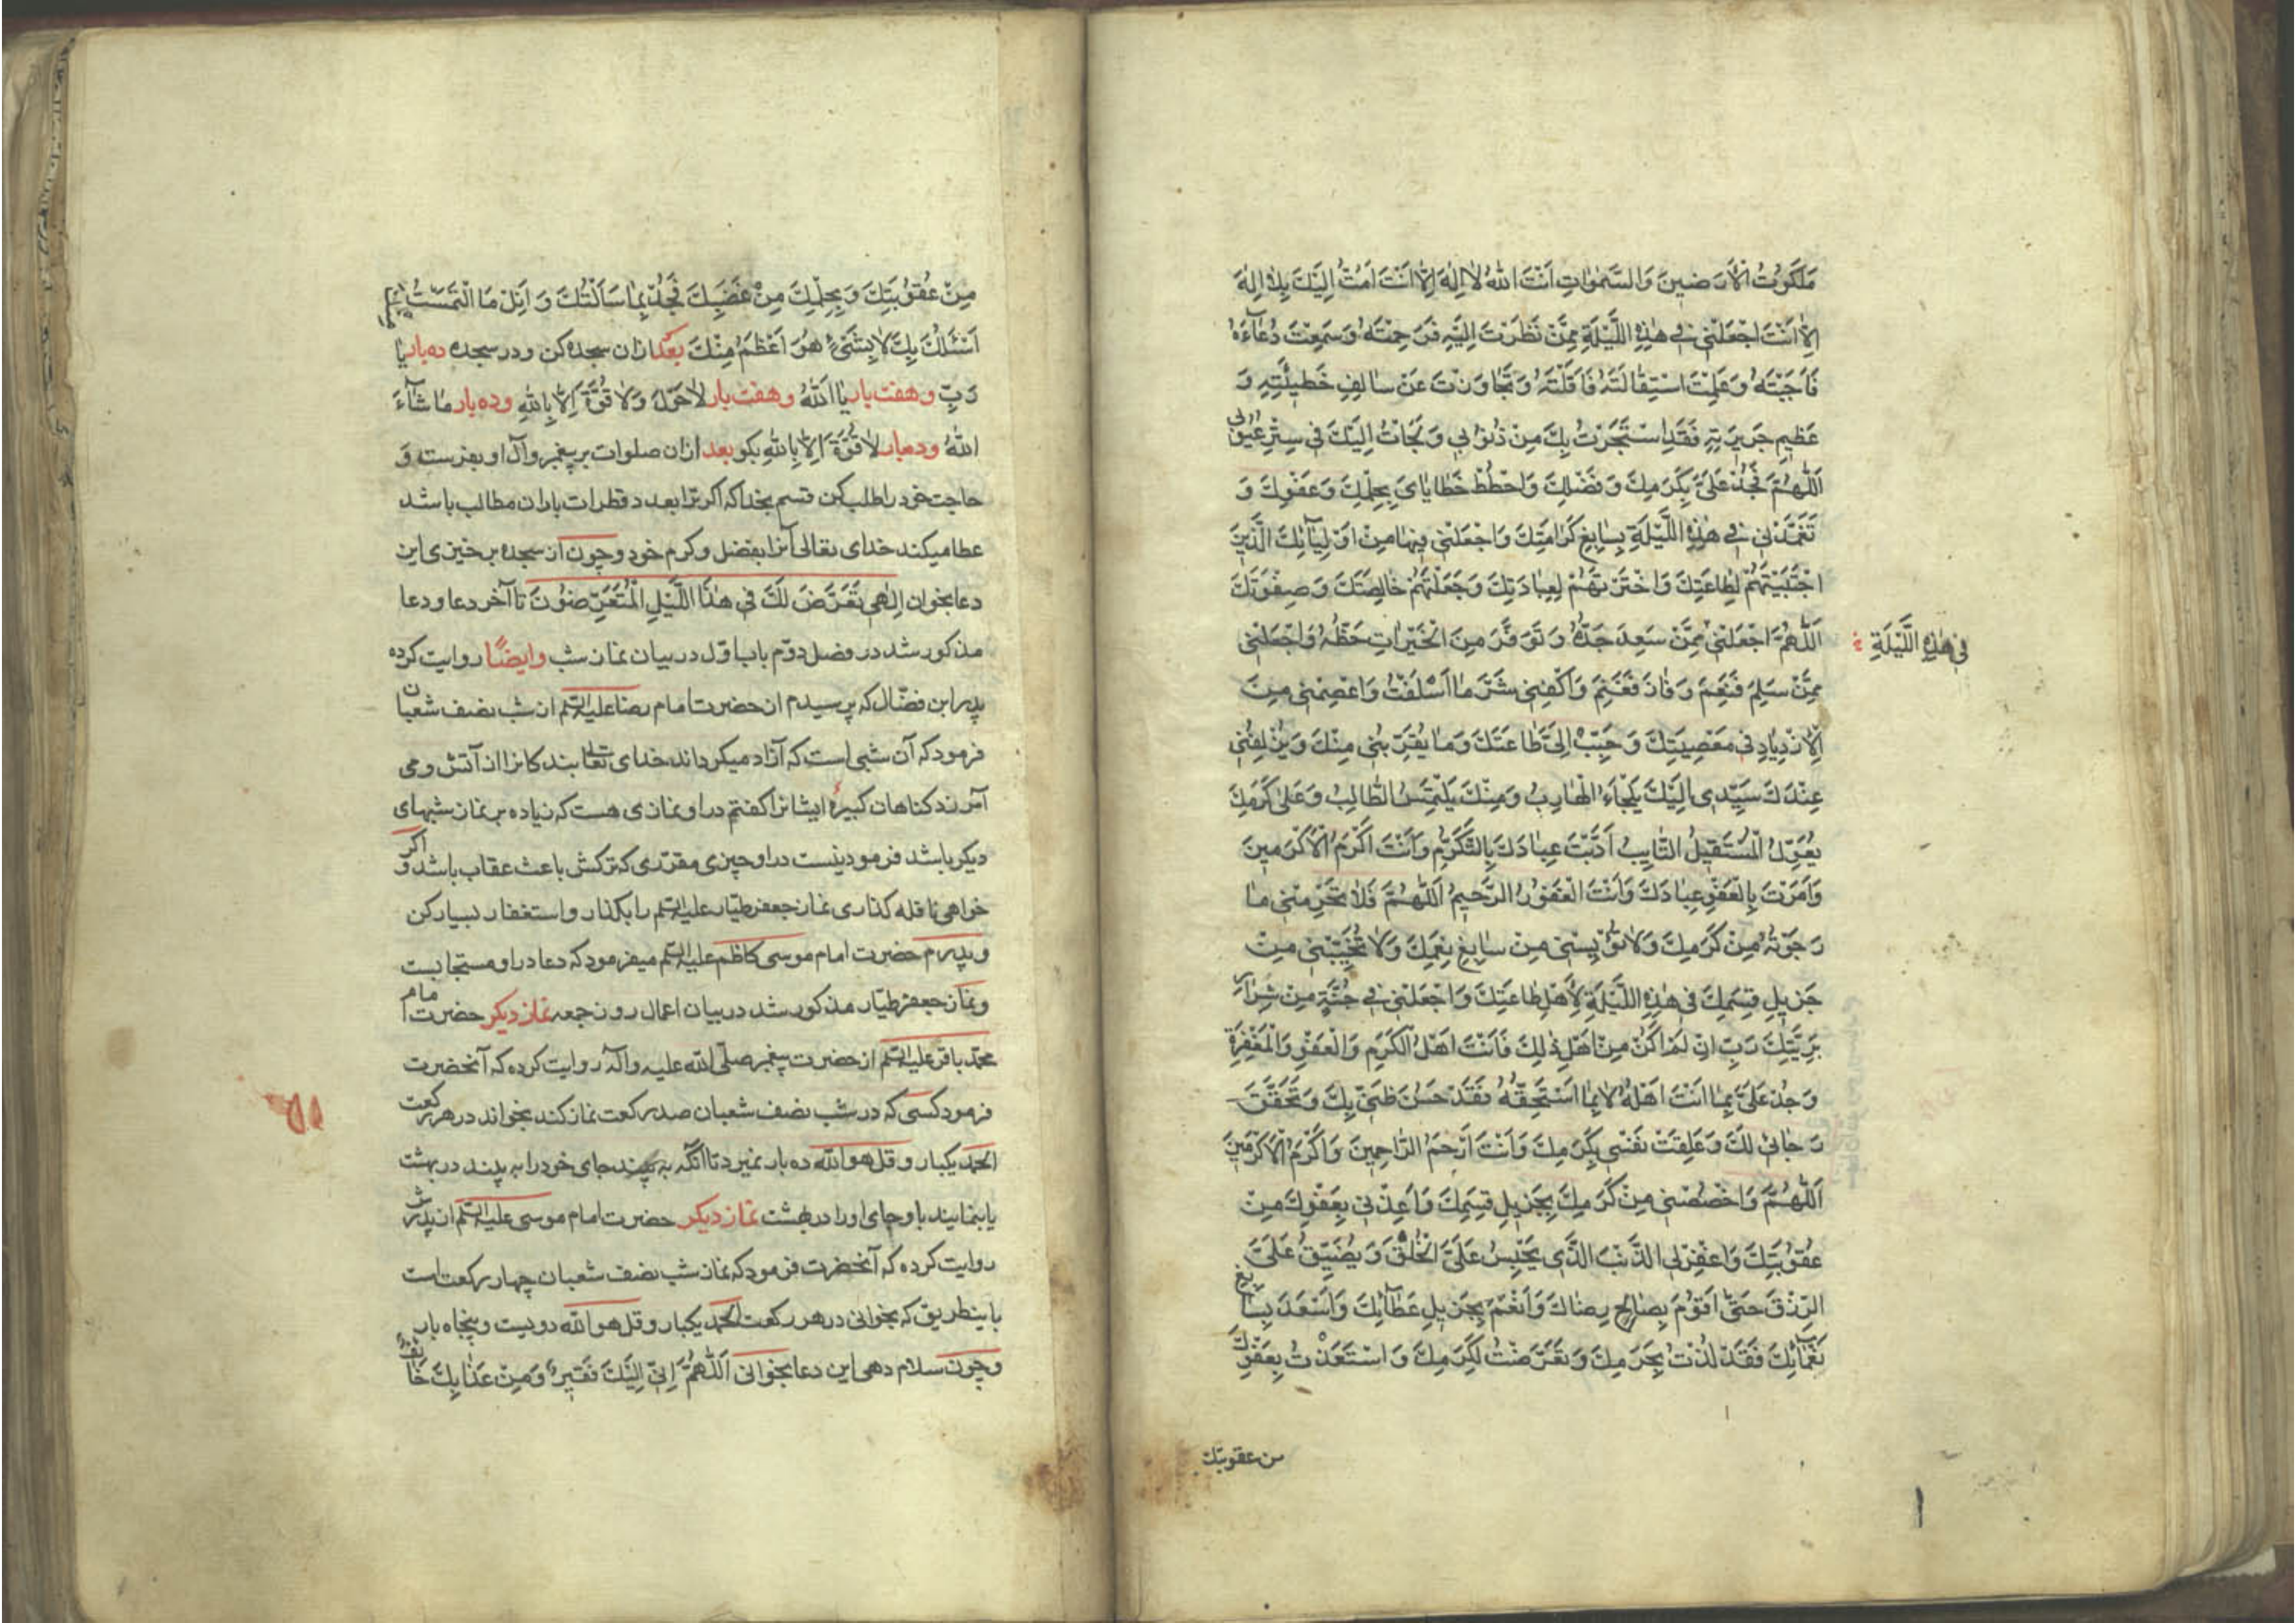 مَلَكُوتُ الْاَرَضينَ وَالسَّمٰوَاتِ اَنْتَ اللهُ لٰا اِلٰهَ اِلّٰا اَنْتَ اَمُتُّ اِلَيْكَ بِلٰا اِلٰهَ
اِلّٰا اَنْتَ اجْعَلْنى فى هٰذِهِ اللَّيْلَةِ مِمَّنْ نَظَرْتَ اِلَيْهِ فَرَحِمْتَهُ وَسَمِعْتَ دُعٰآءَهُ
فَاَجَبْتَهُ وَعَلِمْتَ اسْتِقٰالَتَهُ فَاَقَلْتَهُ وَتَجٰاوَزْتَ عَنْ سٰالِفِ خَطيئَتِهِ وَ
عَظيمِ جَريرَتِهِ فَقَدِ اسْتَجَرْتُ بِكَ مِنْ ذُنُوبى وَلَجَاْتُ اِلَيْكَ فى سِتْرِ عُيُوبى
اَللّٰهُمَّ فَجُدْ عَلَىَّ بِكَرَمِكَ وَفَضْلِكَ وَاحْطُطْ خَطٰايٰاىَ بِحِلْمِكَ وَعَفْوِكَ وَ
تَغَمَّدْنى فى هٰذِهِ اللَّيْلَةِ بِسٰابِغِ كَرٰامَتِكَ وَاجْعَلْنى فيهٰا مِنْ اَوْلِيٰآئِكَ الَّذينَ
اجْتَبَيْتَهُمْ لِطٰاعَتِكَ وَاخْتَرْتَهُمْ لِعِبٰادَتِكَ وَجَعَلْتَهُمْ خٰالِصَتَكَ وَصِفْوَتَكَ
اَللّٰهُمَّ اجْعَلْنى مِمَّنْ سَعِدَ جَدُّهُ وَتَوَفَّرَ مِنَ الْخَيْرٰاتِ حَظُّهُ وَاجْعَلْنى
فى هٰذِهِ اللَّيْلَةِ
مِمَّنْ سَلِمَ فَنَعِمَ وَفٰازَ فَغَنِمَ وَاكْفِنى شَرَّ مٰا اَسْلَفْتُ وَاعْصِمْنى مِنَ
الْاِزْدِيٰادِ فى مَعْصِيَتِكَ وَحَبِّبْ اِلَىَّ طٰاعَتَكَ وَمٰا يُقَرِّبُنى مِنْكَ وَيُزْلِفُنى
عِنْدَكَ سَيِّدى اِلَيْكَ يَلْجَاُ الْهٰارِبُ وَمِنْكَ يَلْتَمِسُ الطّٰالِبُ وَعَلىٰ كَرَمِكَ
يُعَوِّلُ الْمُسْتَقيلُ التّٰايِبُ اَدَّبْتَ عِبٰادَكَ بِالتَّكَرُّمِ وَاَنْتَ اَكْرَمُ الْاَكْرَمينَ
وَاَمَرْتَ بِالْعَفْوِ عِبٰادَكَ وَاَنْتَ الْغَفُورُ الرَّحيمُ اَللّٰهُمَّ فَلٰا تَحْرِمْنى مٰا
رَجَوْتُهُ مِنْ كَرَمِكَ وَلٰا تُؤْيِسْنى مِنْ سٰابِغِ نِعَمِكَ وَلٰا تُخَيِّبْنى مِنْ
جَزيلِ قِسَمِكَ فى هٰذِهِ اللَّيْلَةِ لِاَهْلِ طٰاعَتِكَ وَاجْعَلْنى فى جُنَّةٍ مِنْ شِرٰارِ
بَرِيَّتِكَ رَبِّ اِنْ لَمْ اَكُنْ مِنْ اَهْلِ ذٰلِكَ فَاَنْتَ اَهْلُ الْكَرَمِ وَالْعَفْوِ وَالْمَغْفِرَةِ
وَجُدْ عَلَىَّ بِمٰا اَنْتَ اَهْلُهُ لٰا بِمٰا اَسْتَحِقُّهُ فَقَدْ حَسُنَ ظَنّى بِكَ وَتَحَقَّقَ
رَجٰائى لَكَ وَعَلِقَتْ نَفْسى بِكَرَمِكَ وَاَنْتَ اَرْحَمُ الرّٰاحِمينَ وَاَكْرَمُ الْاَكْرَمينَ
اَللّٰهُمَّ وَاخْصُصْنى مِنْ كَرَمِكَ بِجَزيلِ قِسَمِكَ وَاَعِذْنى بِعَفْوِكَ مِنْ
عُقُوبَتِكَ وَاغْفِرْ لِىَ الذَّنْبَ الَّذى يَحْبِسُ عَلَىَّ الْخُلُقَ وَيُضَيِّقُ عَلَىَّ
الرِّزْقَ حَتّىٰ اَقُومَ بِصٰالِحِ رِضٰاكَ وَاَنْعَمَ بِجَزيلِ عَطٰآئِكَ وَاَسْعَدَ بِسٰابِغِ
نَعْمٰآئِكَ فَقَدْ لُذْتُ بِحَرَمِكَ وَتَعَرَّضْتُ لِكَرَمِكَ وَاسْتَعَذْتُ بِعَفْوِكَ
من عقوبتك
مِنْ عُقُوبَتِكَ وَبِحِلْمِكَ مِنْ غَضَبِكَ فَجُدْ بِمٰا سَاَلْتُكَ وَاَنِلْ مَا الْتَمَسْتُ مِنْكَ
اَسْئَلُكَ بِكَ لٰا بِشَىْءٍ هُوَ اَعْظَمُ مِنْكَ بعد ازان سجده كن ودر سجده ده بار يٰا
رَبِّ وهفت بار يٰا اَللهُ وهفت بار لٰا حَوْلَ وَلٰا قُوَّةَ اِلّٰا بِاللهِ وده بار مٰا شٰآءَ
اللهُ وده بار لٰا قُوَّةَ اِلّٰا بِاللهِ بكو بعد ازان صلوات بر پيغمبر وآل او بفرست وَ
حاجت خود را طلب كن قسم بخدا كه اكر ترا بعدد قطرات باران مطالب باشد
عطا ميكند خداى تعالى آنرا بفضل وكرم خود وچون از سجده برخيزى اين
دعا بخوان اِلٰهى تَعَرَّضَ لَكَ فى هٰذَا اللَّيْلِ الْمُتَعَرِّضُونَ تا آخر دعا ودعا
مذكور شد در فصل دوّم باب اوّل در بيان نماز شب وايضًا روايت كرده
پدر ابن فضّال كه پرسيدم از حضرت امام رضا عليه السّلم از شب نصف شعبان
فرمود كه آن شبى است كه آزاد ميكرداند خداى تعالى بندكانرا از آتش ومى
آمرزد كناهان كبيرهٔ ايشانرا كفتم در او نمازى هست كه زياده بر نماز شبهاى
ديكر باشد فرمود نيست در او چيزى مقرّرى كه تركش باعث عقاب باشد و اكر
خواهى نافله كذارى نماز جعفر طيّار عليه السّلم را بكذار واستغفار بسيار كن
وپدرم حضرت امام موسى كاظم عليه السّلم ميفرمود كه دعا در او مستجابست
ونماز جعفر طيّار مذكور شد در بيان اعمال روز جمعه نماز ديكر حضرت امام
محمّد باقر عليه السّلم از حضرت پيغمبر صلّى الله عليه وآله روايت كرده كه آنحضرت
فرمود كسى كه در شب نصف شعبان صد ركعت نماز كند بخواند در هر ركعت
الحمد يكبار وقل هو الله ده بار نميرد تا آنكه به بيند جاى خود را در بهشت
يا بنمايند باو جاى او را در بهشت نماز ديكر حضرت امام موسى عليه السّلم از پدرش
روايت كرده كه آنحضرت فرمود كه نماز شب نصف شعبان چهار ركعت است
باينطريق كه بخوانى در هر ركعت الحمد يكبار وقل هو الله دويست وپنجاه بار
وچون سلام دهى اين دعا بخوانى اَللّٰهُمَّ اِنّى اِلَيْكَ فَقيرٌ وَمِنْ عَذٰابِكَ خٰائِفٌ